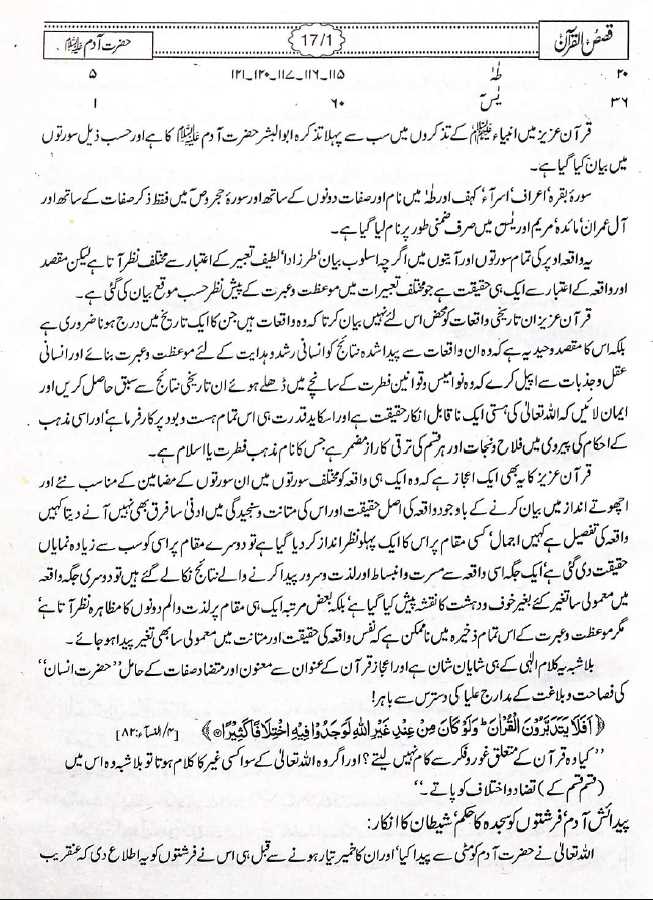 قصص القرآن 17/1 حضرت آدم علیہ السلام
۲۰ طٰہٰ ۱۱۵۔۱۱۶۔۱۱۷۔۱۲۰۔۱۲۱ ۵
۳۶ یٰسٓ ۶۰ ۱
قرآن عزیز میں انبیاء علیہم السلام کے تذکروں میں سب سے پہلا تذکرہ ابوالبشر حضرت آدم علیہ السلام کا ہے اور حسب ذیل سورتوں
میں بیان کیا گیا ہے۔
سورۂ بقرہ، اعراف، اسرآء، کہف اور طٰہٰ میں نام اور صفات دونوں کے ساتھ اور سورۂ حجر و صٓ میں فقط ذکر صفات کے ساتھ اور
آل عمران، مائدہ، مریم اور یٰس میں صرف ضمنی طور پر نام لیا گیا ہے۔
یہ واقعہ اوپر کی تمام سورتوں اور آیتوں میں اگرچہ اسلوب بیان، طرز ادا، لطیف تعبیر کے اعتبار سے مختلف نظر آتا ہے لیکن مقصد
اور واقعہ کے اعتبار سے ایک ہی حقیقت ہے جو مختلف تعبیرات میں موعظت و عبرت کے پیش نظر حسب موقع بیان کی گئی ہے۔
قرآن عزیز ان تاریخی واقعات کو محض اس لئے نہیں بیان کرتا کہ وہ واقعات ہیں جن کا ایک تاریخ میں درج ہونا ضروری ہے
بلکہ اس کا مقصد وحید یہ ہے کہ وہ ان واقعات سے پیدا شدہ نتائج کو انسانی رشد و ہدایت کے لئے موعظت و عبرت بنائے اور انسانی
عقل و جذبات سے اپیل کرے کہ وہ نوامیس و قوانین فطرت کے سانچے میں ڈھلے ہوئے ان تاریخی نتائج سے سبق حاصل کریں اور
ایمان لائیں کہ اللہ تعالیٰ کی ہستی ایک ناقابل انکار حقیقت ہے اور اسکا ید قدرت ہی اس تمام ہست و بود پر کارفرما ہے، اور اسی مذہب
کے احکام کی پیروی میں فلاح و نجات اور ہر قسم کی ترقی کا راز مضمر ہے جس کا نام مذہب فطرت یا اسلام ہے۔
قرآن عزیز کا یہ بھی ایک اعجاز ہے کہ وہ ایک ہی واقعہ کو مختلف سورتوں میں ان سورتوں کے مضامین کے مناسب نئے اور
اچھوتے انداز میں بیان کرنے کے باوجود واقعہ کی اصل حقیقت اور اس کی متانت و سنجیدگی میں ادنیٰ سا فرق بھی نہیں آنے دیتا کہیں
واقعہ کی تفصیل ہے کہیں اجمال، کسی مقام پر اس کا ایک پہلو نظر انداز کر دیا گیا ہے تو دوسرے مقام پر اسی کو سب سے زیادہ نمایاں
حقیقت دی گئی ہے، ایک جگہ اسی واقعہ سے مسرت و انبساط اور لذت و سرور پیدا کرنے والے نتائج نکالے گئے ہیں تو دوسری جگہ واقعہ
میں معمولی سا تغیر کئے بغیر خوف و دہشت کا نقشہ پیش کیا گیا ہے، بلکہ بعض مرتبہ ایک ہی مقام پر لذت و الم دونوں کا مظاہرہ نظر آتا ہے،
مگر موعظت و عبرت کے اس تمام ذخیرہ میں ناممکن ہے کہ نفس واقعہ کی حقیقت اور متانت میں معمولی سا بھی تغیر پیدا ہو جائے۔
بلاشبہ یہ کلام الٰہی کے ہی شایان شان ہے اور اعجاز قرآن کے عنوان سے معنون اور متضاد صفات کے حامل ’’حضرت انسان‘‘
کی فصاحت و بلاغت کے مدارج علیا کی دسترس سے باہر!
﴿اَفَلَا یَتَدَبَّرُوْنَ الْقُرْاٰنَ ؕ وَلَوْ كَانَ مِنْ عِنْدِ غَیْرِ اللّٰهِ لَوَجَدُوْا فِیْهِ اخْتِلَافًا كَثِیْرًا﴾ [۴/النسآء:۸۲]
’’کیا وہ قرآن کے متعلق غور و فکر سے کام نہیں لیتے؟ اور اگر وہ اللہ تعالیٰ کے سوا کسی غیر کا کلام ہوتا تو بلاشبہ وہ اس میں
(قسم قسم کے) تضاد و اختلاف کو پاتے۔‘‘
پیدائش آدم، فرشتوں کو سجدہ کا حکم، شیطان کا انکار:
اللہ تعالیٰ نے حضرت آدم کو مٹی سے پیدا کیا، اور ان کا خمیر تیار ہونے سے قبل ہی اس نے فرشتوں کو یہ اطلاع دی کہ عنقریب